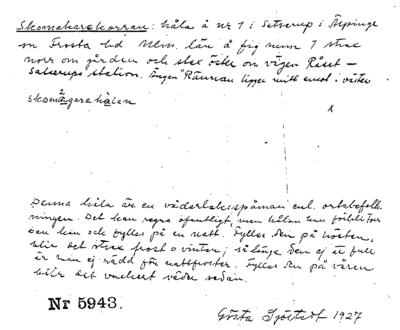 Skomakarekorran: håla å nr 1 i Satserup i Äspinge
sn Frosta hd Mlm. län å fig num 7 strax
norr om gården och strax öster om vägen Råset –
Satserups station. Ängen "Räuran ligger mitt emot i väster
skomågarehålan
x
Denna håla är en väderleksspåman enl. ortsbefolk-
ningen. Det kan regna öfverflödigt, men hålan kan förbli torr
den kan ock fyllas på en natt. Fylles den på hösten,
blir det sträng frost o vinter; så länge den ej är full
är man ej rädd för nattfroster. Fylles den på våren
blir det vackert väder sedan.
Nr 5943.
Gösta Sjöstedt 1927